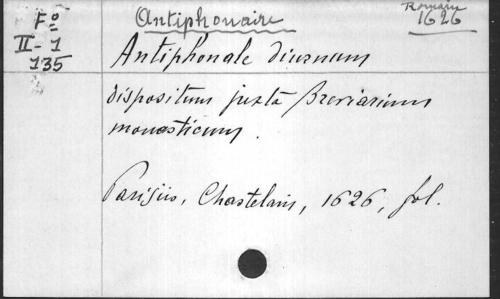 Fº
II-1
135
Antiphonaire
Romain
1626
Antiphonale diurnum
dispositum juxta Breviarium
monasticum.
Parisiis, Chastelain, 1626, fol.